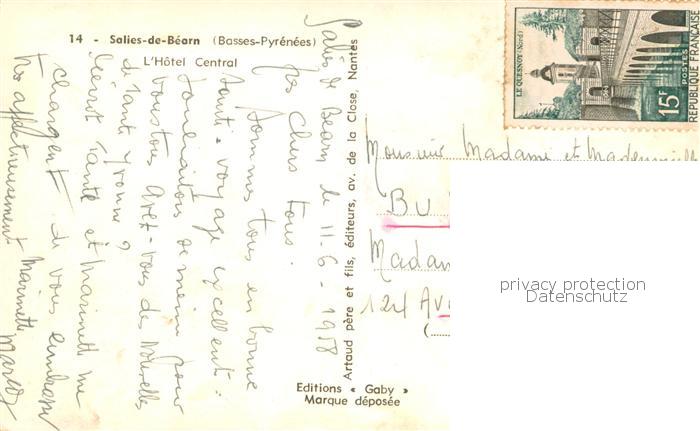 14 - Salies-de-Béarn (Basses-Pyrénées)
L'Hôtel Central
Salies de Béarn le 11-6-1958
chers tous.
sommes tous en bonne
santé. voyage excellent.
souhaitons de même pour
vous tous. Avez-vous des nouvelles
de Tante Yvonne?
Tante et Marinette me
chargent de vous embrasser
très affectueusement Marinette Marcos
Artaud père et fils, éditeurs, av. de la Close, Nantes
Editions « Gaby »
Marque déposée
LE QUESNOY (Nord)
15F
POSTES
REPUBLIQUE FRANÇAISE
Monsieur Madame et Mademoiselle
BU
Madam
124 Av
(
privacy protection
Datenschutz